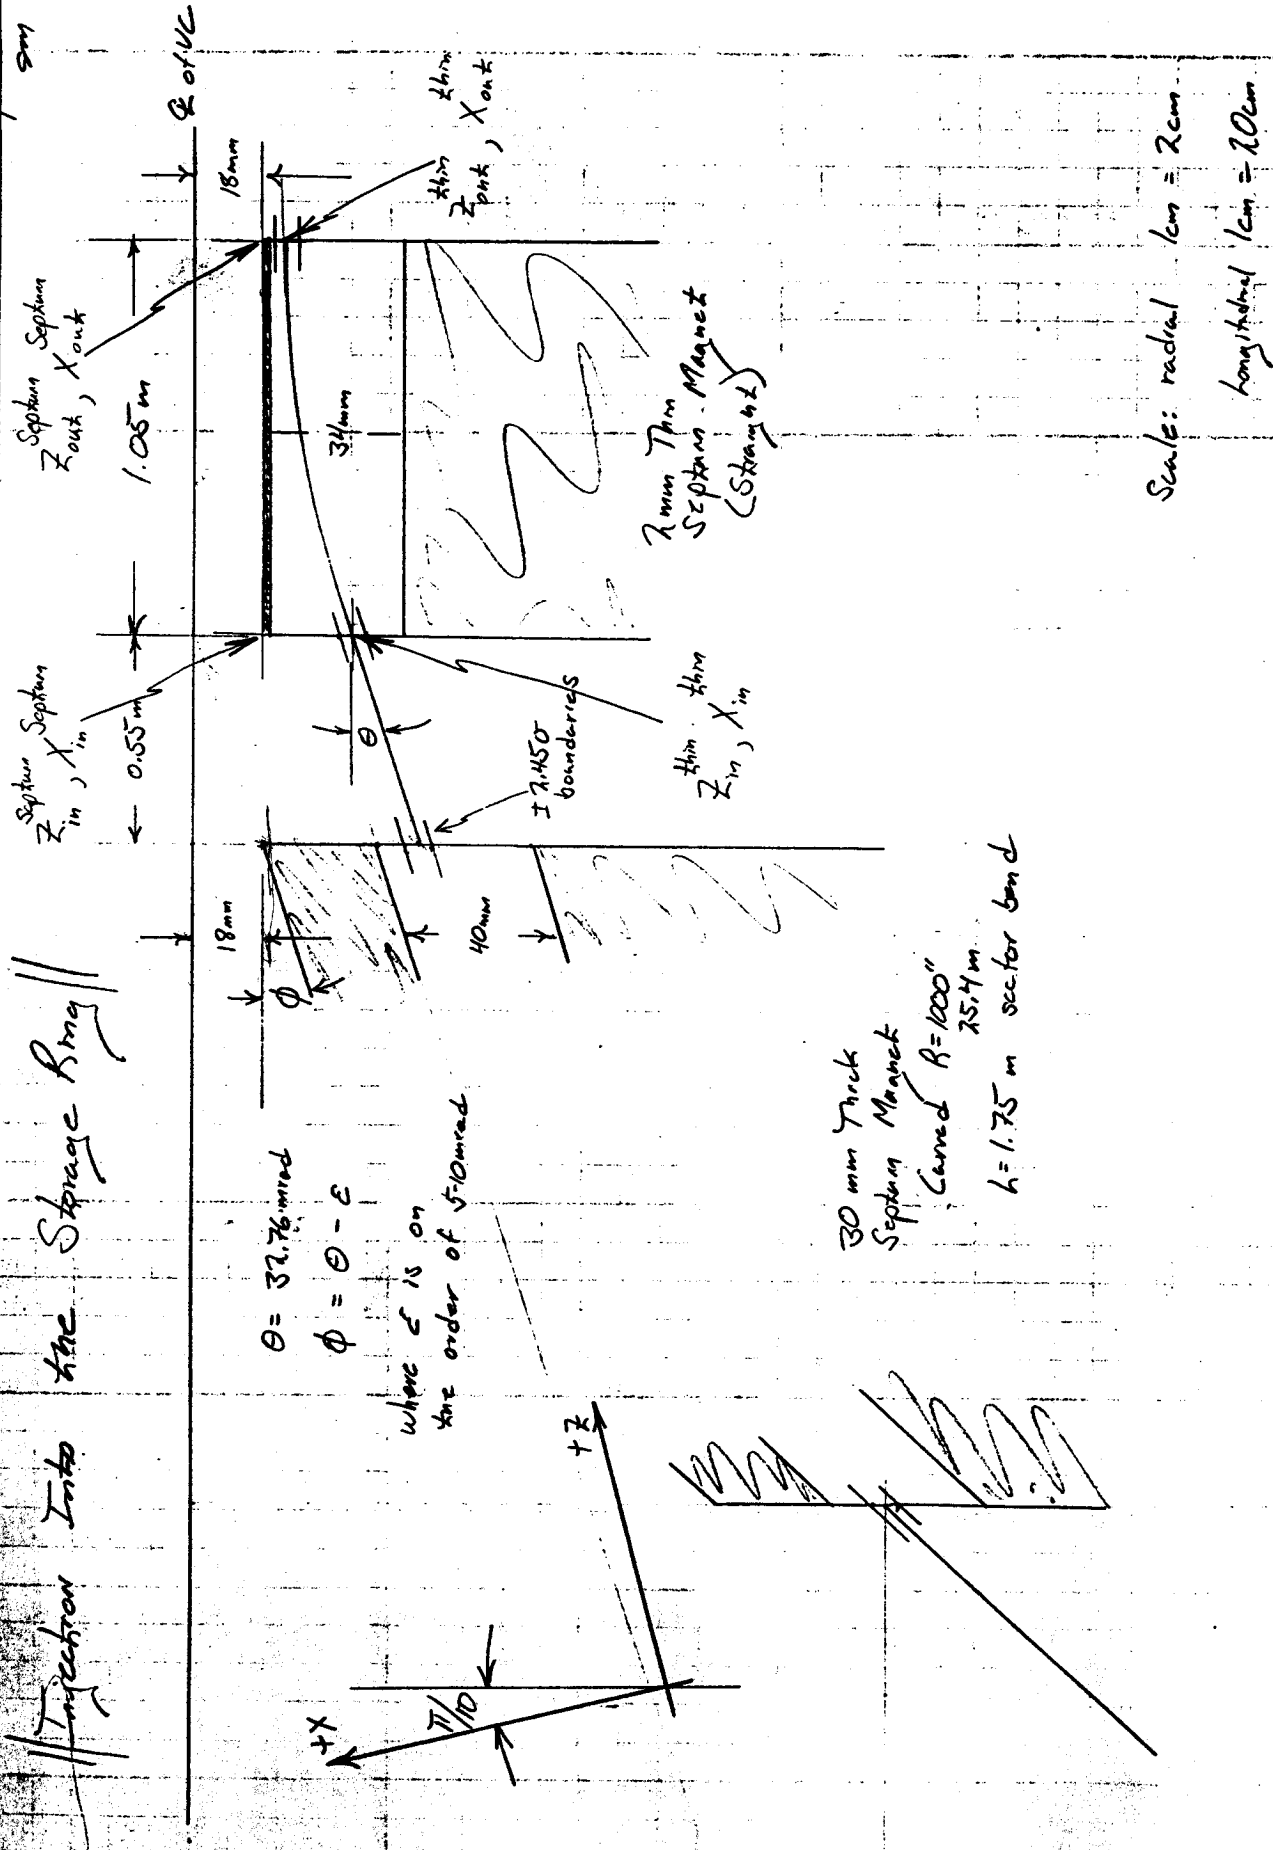 Injection Into the Storage Ring
℄ of VC
Z_in^Septum, X_in^Septum
Z_out^Septum, X_out^Septum
0.55m
1.05m
18mm
18mm
ϕ
40mm
θ
34mm
Z_out^thin, X_out^thin
± 2.45σ
boundaries
Z_in^thin, X_in^thin
2mm Thin
Septum Magnet
(Straight)
θ = 32.76 mrad
ϕ = θ - ε
where ε is on
the order of 5-10mrad
+X
π/10
+Z
30 mm Thick
Septum Magnet
Curved R=1000"
25.4m
L=1.75 m sector bend
Scale: radial 1cm = 2cm
Longitudinal 1cm = 20cm